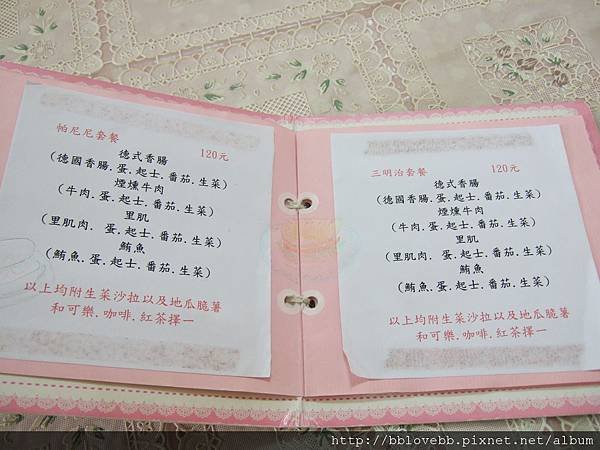 帕尼尼套餐 120元
德式香腸
(德國香腸.蛋.起士.番茄.生菜)
煙燻牛肉
(牛肉.蛋.起士.番茄.生菜)
里肌
(里肌肉. 蛋.起士.番茄.生菜)
鮪魚
(鮪魚.蛋.起士.番茄.生菜)
以上均附生菜沙拉以及地瓜脆薯
和可樂.咖啡.紅茶擇一
三明治套餐 120元
德式香腸
(德國香腸.蛋.起士.番茄.生菜)
煙燻牛肉
(牛肉.蛋.起士.番茄.生菜)
里肌
(里肌肉. 蛋.起士.番茄.生菜)
鮪魚
(鮪魚.蛋.起士.番茄.生菜)
以上均附生菜沙拉以及地瓜脆薯
和可樂.咖啡.紅茶擇一
http://bblovebb.pixnet.net/album